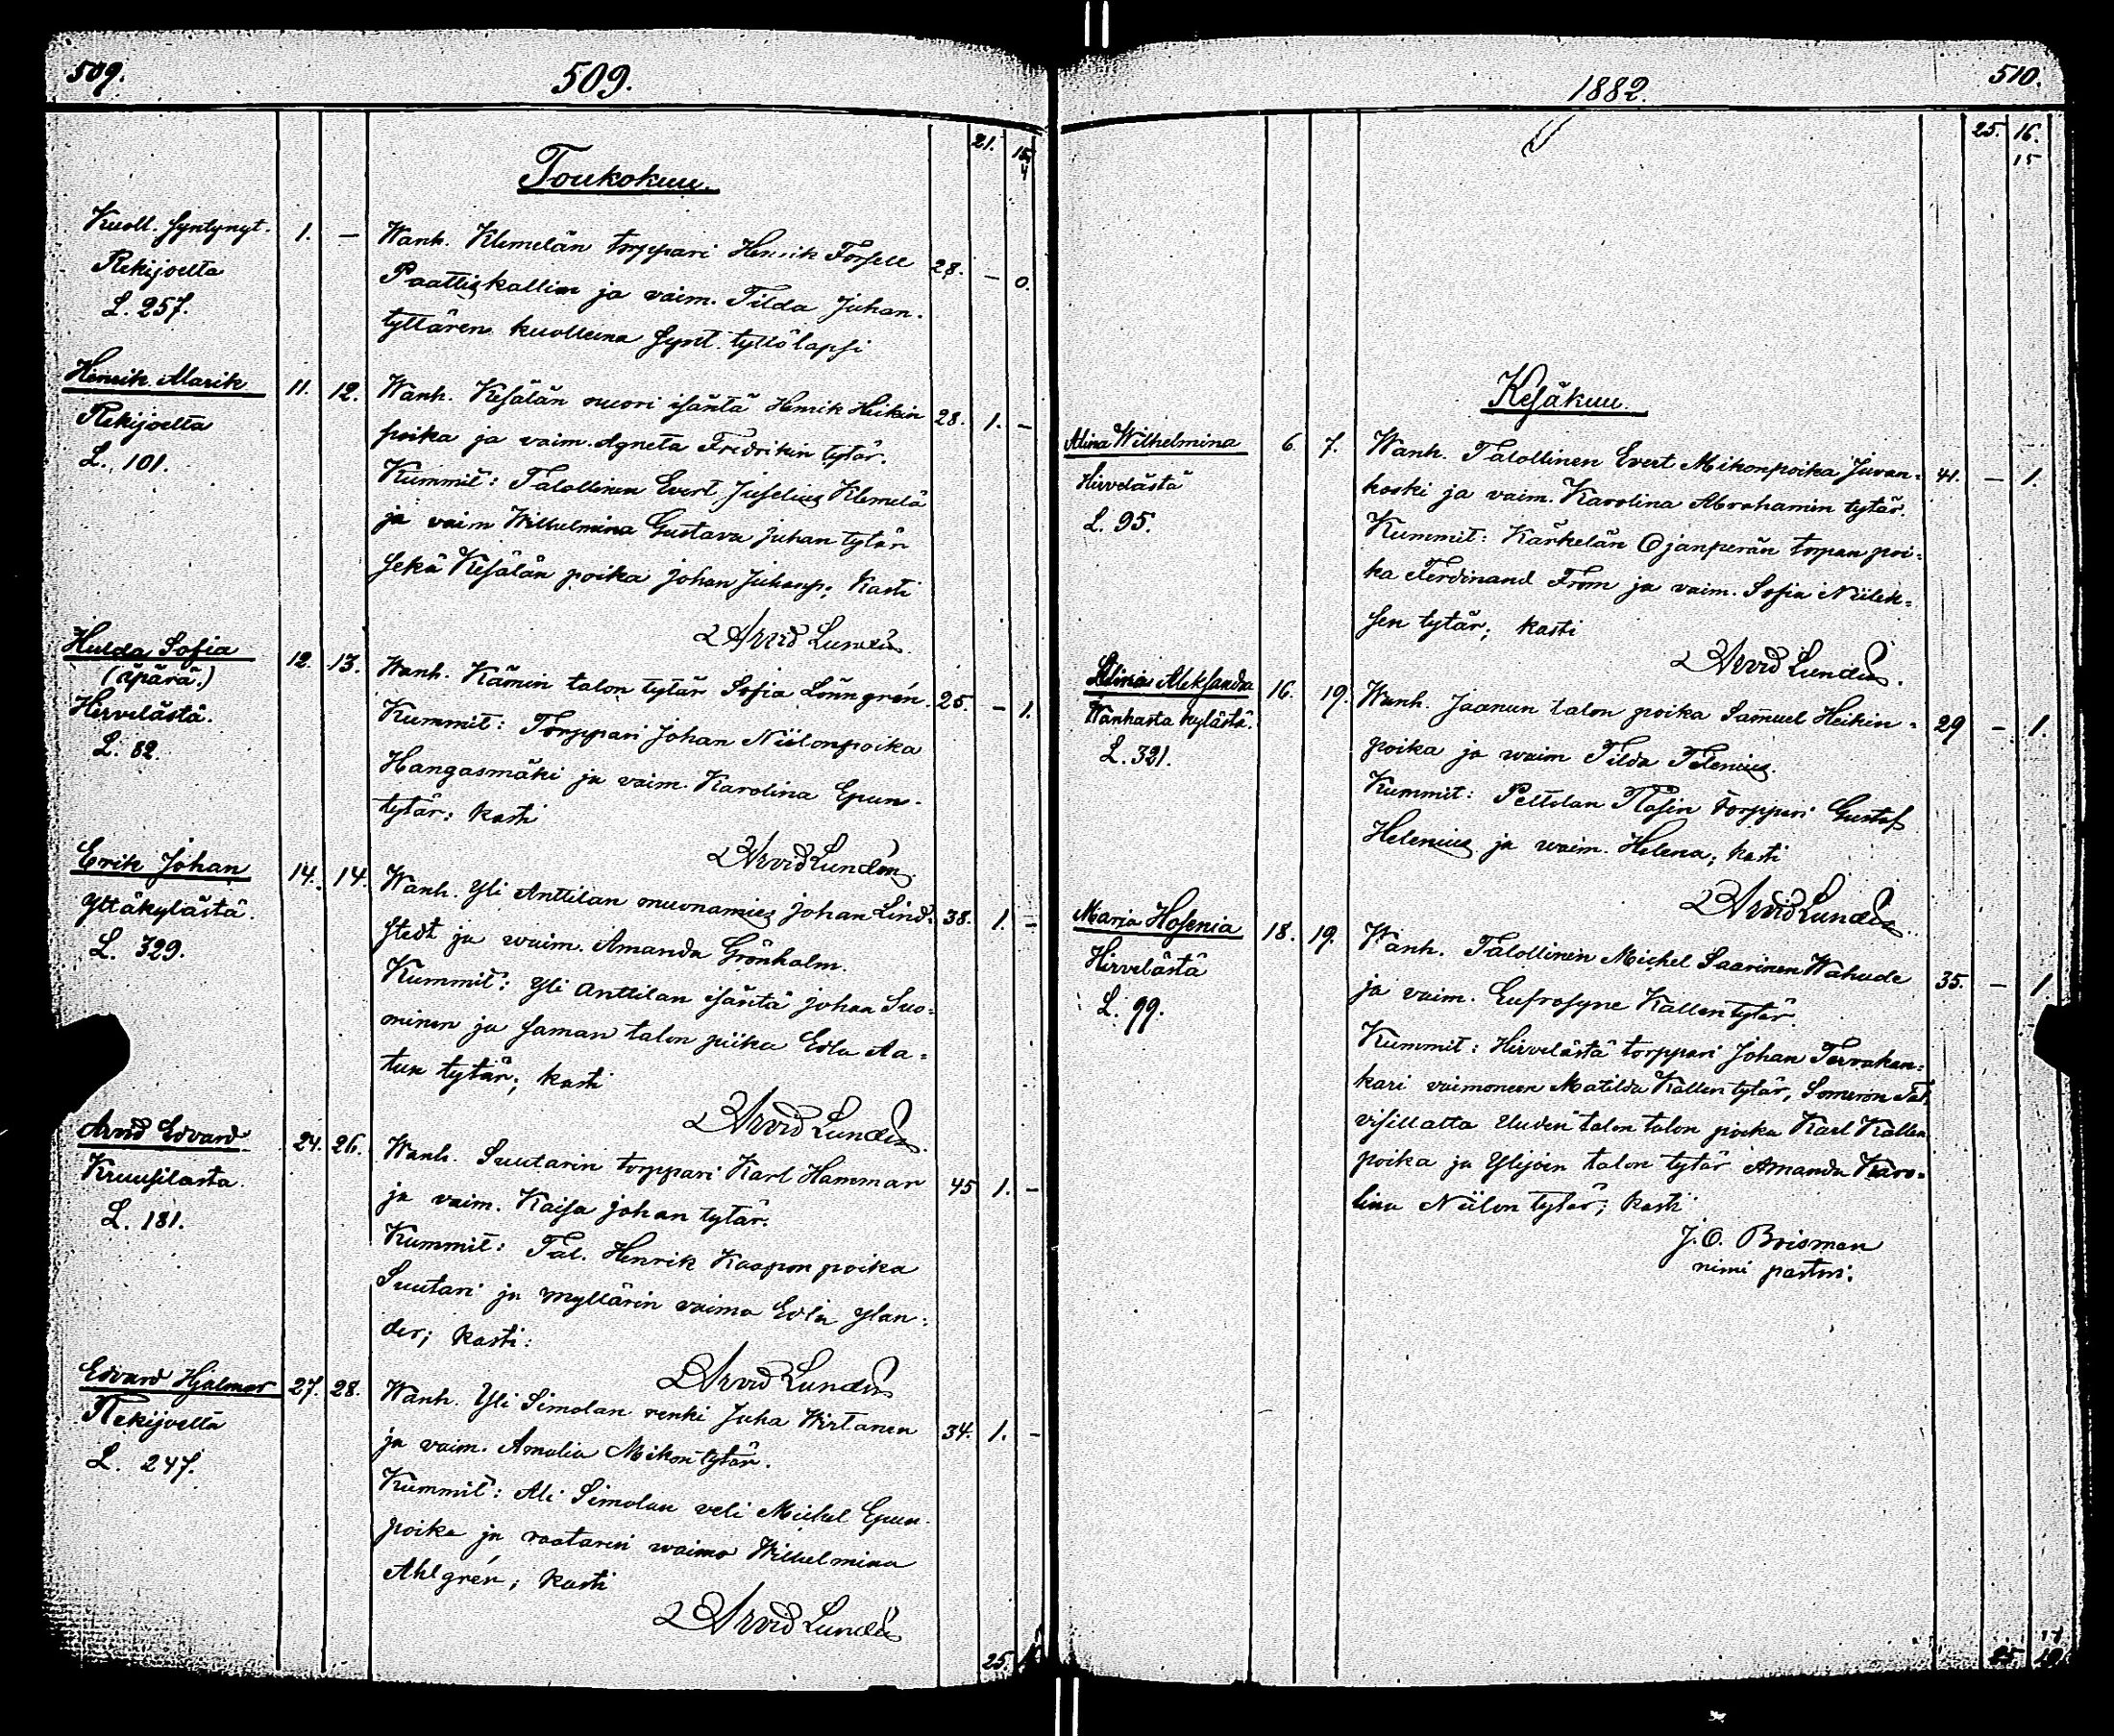 509.
509.
21. 15
4
Toukokuu.
Kuoll. syntynyt.
Rekijoelta
L. 257.
1. —
Wanh. Klemelän torppari Henrik Forsell
Paattiskallion ja vaim. Tilda Juhan-
tyttären kuolleena synt. tyttölapsi
28. — 0.
Henrik Alarik
Rekijoelta
L. 101.
11. 12.
Wanh. Kesälän nuori isäntä Henrik Heikin
poika ja vaim. Agneta Fredrikin tytär.
Kummit: Talollinen Evert Juselius Klemelä
ja vaim Wilhelmina Gustava Juhan tytär
sekä Kesälän poika Johan Juhanp.; Kasti
Arvid Lundén.
28. 1. —
Hulda Sofia
(äpärä.)
Hirvelästä.
L. 82.
12. 13.
Wanh. Kämin talon tytär Sofia Lönngrén.
Kummit: Torppari Johan Niilonpoika
Hangasmäki ja vaim. Karolina Epun-
tytär; kasti
Arvid Lundén.
25. — 1.
Erik Johan
Yltäkylästä.
L. 329.
14. 14.
Wanh. Yli Anttilan muonamies Johan Lind-
stedt ja waim. Amanda Grönholm.
Kummit: Yli Anttilan isäntä Johan Suo-
minen ja saman talon piika Edla Aa-
tun tytär; kasti
Arvid Lundén.
38. 1. —
Arvid Edvard
Kruusilasta.
L. 181.
24. 26.
Wanh. Suutarin torppari Karl Hammar
ja vaim. Kaisa Johan tytär.
Kummit: Tal. Henrik Kaapon poika
Suutari ja myllärin vaimo Edla Ylan-
der; kasti:
Arvid Lundén
45 1. —
Edvard Hjalmar
Rekijoelta
L. 247.
27. 28.
Wanh. Yli Simolan renki Juha Wirtanen
ja vaim. Amalia Mikon tytär.
Kummit: Ali Simolan veli Michel Epun-
poika ja raatarin waimo Wilhelmina
Ahlgrén; kasti
Arvid Lundén
34. 1. —
25.
1882.
510.
25. 16.
15
Kesäkuu.
Alina Wilhelmina
Hirvelästä
L. 95.
6. 7.
Wanh. Talollinen Evert Mikonpoika Juvan-
koski ja vaim. Karolina Abrahamin tytär.
Kummit: Kärkelän Ojanperän torpan poi-
ka Ferdinand From ja vaim. Sofia Niilek-
sen tytär; kasti
Arvid Lundén.
41. — 1.
Aleksandra
Wanhasta kylästä.
L. 321.
16. 19.
Wanh. Jaanun talon poika Samuel Heikin-
poika ja waim Tilda Telenius.
Kummit: Peltolan Torppari Gustaf
Helenius ja waim. Helena; kasti
Arvid Lundén
29 — 1.
Maria Hosenia
Hirvelästä
L. 99.
18. 19.
Wanh. Talollinen Michel Saarinen Wahude
ja vaim. Eufrosyne Kallen tytär.
Kummit: Hirvelästä torppari Johan Tervakan-
kari vaimoneen Matilda Kallen tytär, Someron Tal-
visillalta Uuden talon talon poika Karl Kallen
poika ja Ylijoen talon tytär Amanda Karo-
lina Niilon tytär; kasti
J. O. Brisman
nimi pastori.
35. — 1
25